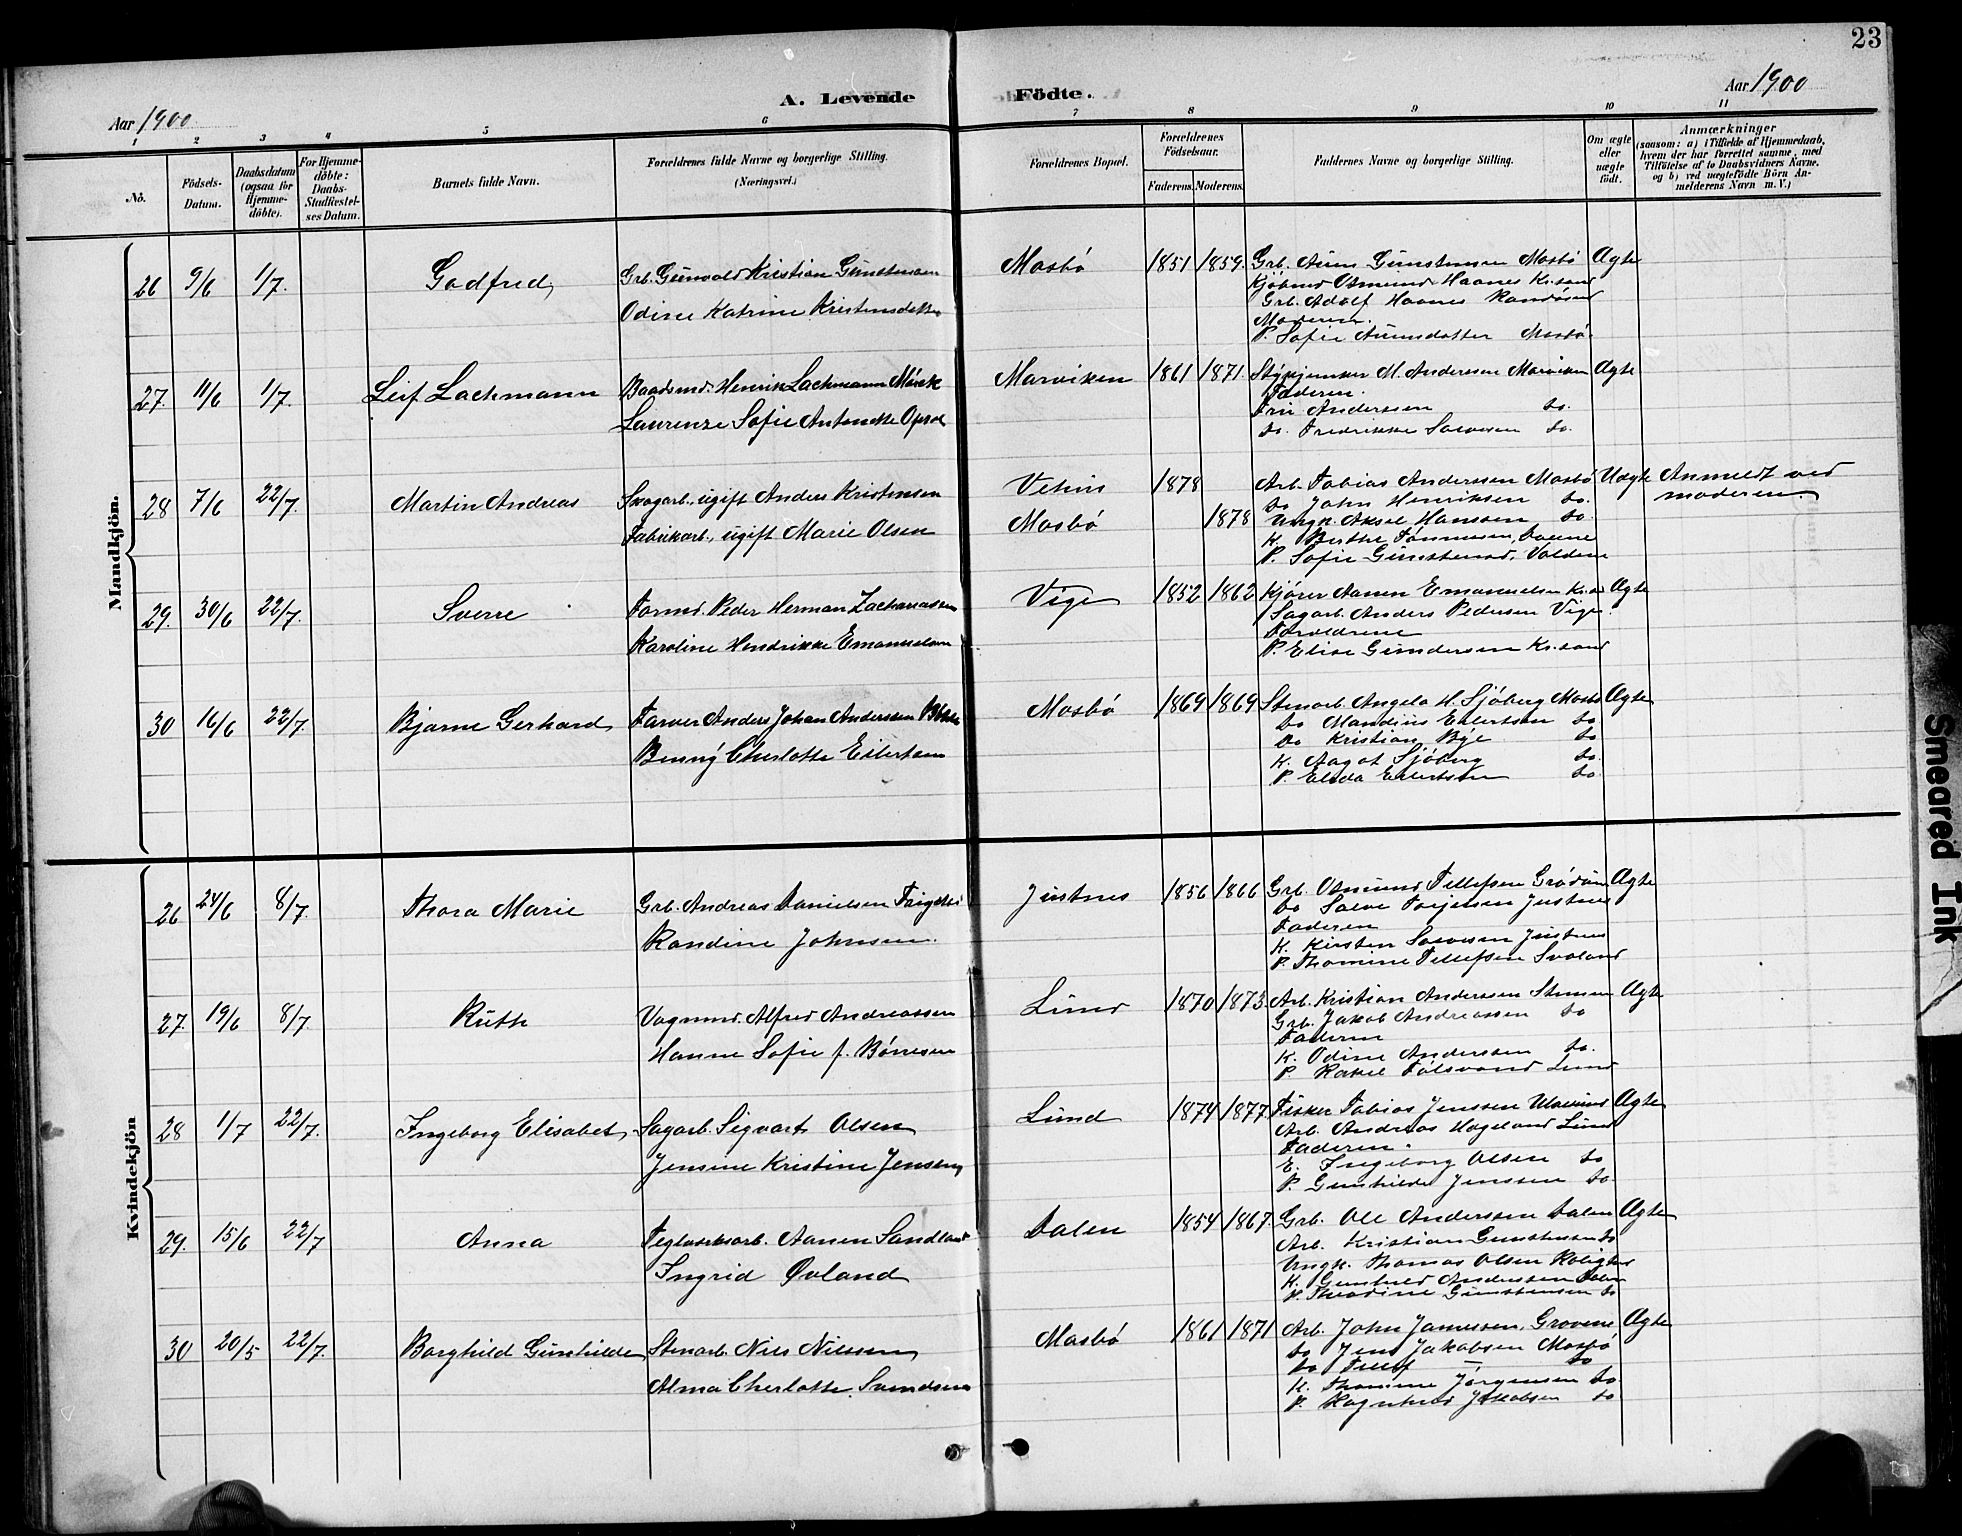 23
Aar 1900
A. Levende Födte.
Aar 1900
1 2 3 4 5 6 7 8 9 10 11
No.
Födsels-Datum.
Daabsdatum (ogsaa for Hjemmedöbte).
For Hjemmedöbte: Daabs-Stadfæstelses Datum.
Barnets fulde Navn.
Forældrenes fulde Navne og borgerlige Stilling. (Næringsvei.)
Forældrenes Bopæl.
Forældrenes Födselsaar.
Faderens. Moderens.
Faddernes Navne og borgerlige Stilling.
Om ægte eller uægte født.
Anmærkninger
(saasom: a) i Tilfælde af Hjemmedaab,
hvem der har forrettet samme, med
Tilföielse af to Daabsvidners Navne.
og b) ved uægtefödte Börn An-
melderens Navn m. V.)
Mandkjön.
26 9/6 1/7. Godfred,
Grb. Gunvald Kristian Gunstensen
Odine Katrine Kristensdatter
Mosbö 1851 1859. Ægte
Grb. Aanen Gunstensen Mosbö
Kjöbmd Osmund Haanes Kr.sand
Grb. Adolf Haanes Randösund
Moderen.
P. Sofie Aanensdatter Mosbö.
27. 11/6 1/7. Leif Lachmann
Baadsmd. Henrik Lachmann Mörck
Laurenze Sofie Antonette
Marviken 1861 1871. Ægte
M. Andersen Marviken
Faderen.
Fru Anderssen do.
do. Fredrikke Salvesen do.
28 7/6 22/7. Martin Andreas
ugift Anders Kristensen
Fabrikarb., ugift Marie Olsen
Mosbö 1878
1878 Uægte
Anmeldt ved
moderen
Arb. Tobias Anderssen Mosbö
do John Henriksen do.
Ungk. Aksel Hanssen do.
K. Berthe
P. Sofie
29. 30/6 22/7. Sverre
Formd. Peder Herman Zachariassen
Karoline Hendrikke Emanuelsen
Vige 1852 1862 Ægte
Kjörer Aanen Emanuelsen Kr.sd
Sagarb. Anders Pedersen Vige.
Forældrene
P. Elise Gundersen Kr.sand
30 16/6 22/7. Bjarne Gerhard
Farver Anders Johan Anderssen
Benny Cherlotte Eilertsen
Mosbö 1869 1869 Ægte
Stenarb. Angela H. Sjöberg Mosbö
do Mandius Eilertsen do
do Kristian Bye do
K. Aagot Sjöberg do.
P. Elida Eilertsen do
Kvindekjön
26 24/6 8/7. Thora Marie
Grb. Andreas Danielsen
Randine Johnsen.
Justnes 1856 1866 Ægte
Grb. Osmund Tellefsen
do Salve Torjersen Justnes
Faderen
K. Kirsten Salvesen Justnes
P. Thomine Tellefsen
27. 19/6 8/7. Ruth
Vognmd. Alfred Andreassen
Hanne Sofie f. Börresen
Lund 1870 1873. Ægte
Arb. Kristian Anderssen
Grb. Jakob Andreassen do
Faderen
K. Odine Anderssen do.
P. Rakel Lund
28 1/7 22/7. Ingeborg Elisabet
Sagarb. Sigvart Olsen
Jensine Kristine Jenssen
Lund 1874 1877 Ægte
Fisker Tobias Jenssen
Arb. Andreas Hægeland Lund
Faderen.
E. Ingeborg Olsen do
P. Gunhilde Jenssen do.
29. 15/6 22/7 Anna
Teglværksarb. Aanen Sandland
Ingrid Øvland
Dalen 1854 1867. Ægte
Grb. Ole Anderssen Dalen
Arb. Kristian Gunstensen do
Ungk. Thomas Olsen
K. Gunhild Anderssen Dalen
P. Theodine Gunstensen do
30 20/5 22/7. Borghild Gunhilde
Stenarb. Nils Nilssen
Alma Cherlotte Svendsen
Mosbö 1861 1871 Ægte
Arb. John Jamessen,
do Jens Jakobsen Mosbö
do Tellef — do
K. Thomine Jörgensen do
P. Ragnhild Jakobsen do
Smeared Ink